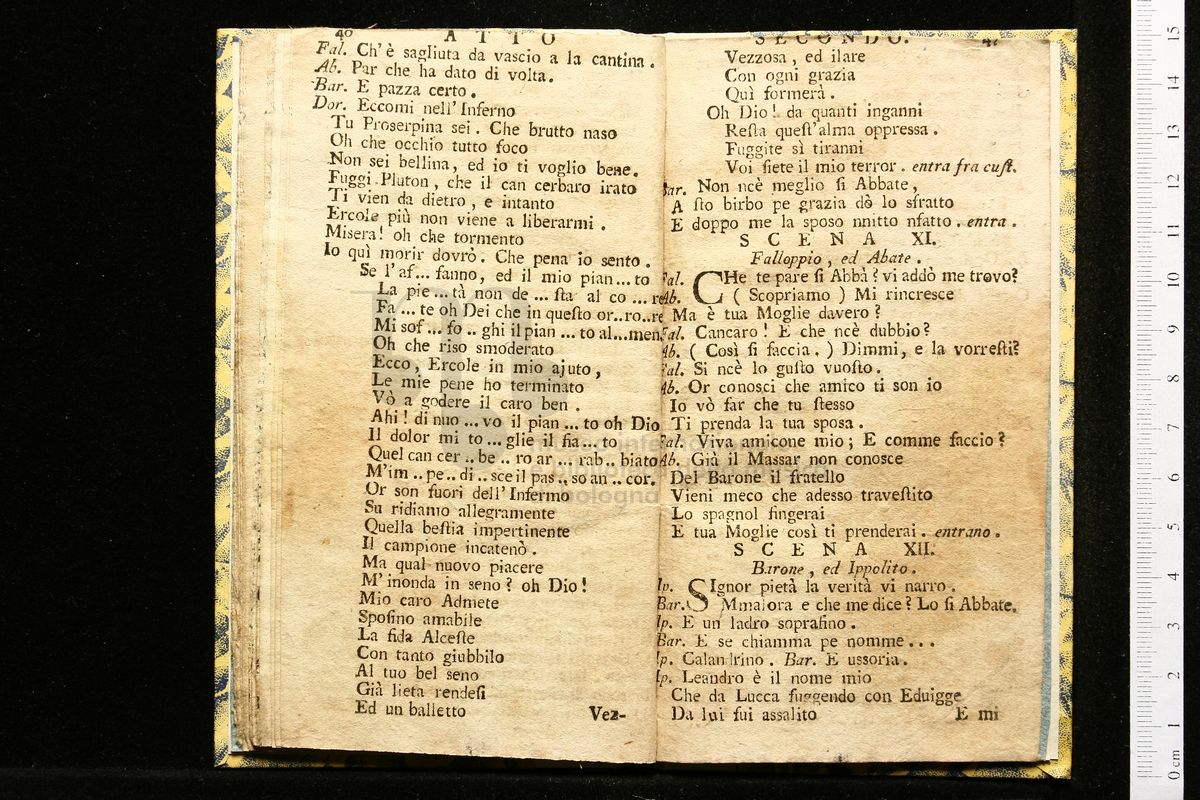 40 ATTO
Fal. Ch'è sagliuta da vascio a la cantina.
Ab. Par che ha dato di volta.
Bar. E pazza certo.
Dor. Eccomi nell'Inferno
Tu Proserpina sei. Che brutto naso
Oh che occhio tutto foco
Non sei bellina, ed io ti voglio bene.
Fuggi Pluton, che il can cerbaro irato
Ti vien da dietro, e intanto
Ercole più non viene a liberarmi.
Misera! oh che tormento
Io quì morir dovrò. Che pena io sento.
Se l'af... fanno, ed il mio pian... to
La pie... tà non de... sta al co... re
Fa... te oh Dei che in questo or..ro..re
Mi sof... fo.. ghi il pian... to al...men
Oh che riso smoderato
Ecco, Ercole in mio ajuto,
Le mie pene ho terminato
Vò a godere il caro ben.
Ahi! di nuo... vo il pian... to oh Dio
Il dolor mi to... glie il fia... to
Quel can cer.. be.. ro ar... rab.. biato
M'im.. pe.. di.. sce il pas.. so an.. cor.
Or son fuori dell'Inferno
Su ridiamo allegramente
Quella bestia impertinente
Il campione incatenò.
Ma qual nuovo piacere
M'inonda in seno? oh Dio!
Mio caro Admete
Sposino amabile
La fida Alceste
Con tanto giubbilo
Al tuo bel seno
Già lieta rendesi
Ed un balletto
Vez-
SECONDO. 41
Vezzosa, ed ilare
Con ogni grazia
Quì formerà.
Oh Dio! da quanti inganni
Resta quest'alma oppressa.
Fuggite sì tiranni
Voi siete il mio terror. entra fra cust.
Bar. Non ncè meglio si Abbate,
A sto birbo pe grazia dò lo sfratto
E doppo me la sposo nnitto nfatto. entra.
SCENA XI.
Falloppio, ed Abate.
Fal. CHe te pare si Abbà? vi addò me trovo?
Ab. (Scopriamo) Mi rincresce
Ma è tua Moglie davero?
Fal. Cancaro! E che ncè dubbio?
Ab. (Così si faccia.) Dimmi, e la vorresti?
Fal. Si ncè lo gusto vuosto.
Ab. Or conosci che amico ti son io
Io vò far che tu stesso
Ti prenda la tua sposa.
Fal. Viva amicone mio; E comme faccio?
Ab. Già il Massar non conosce
Del Barone il fratello
Vieni meco che adesso travestito
Lo spagnol fingerai
E tua Moglie così ti prenderai. entrano.
SCENA XII.
Barone, ed Ippolito.
Ip. SIgnor pietà la verità vi narro.
Bar. Mmalora e che me dice? Lo si Abbate.
Ip. E un ladro soprafino.
Bar. E se chiamma pe nomme...
Ip. Galandrino. Bar. E ussoria.
Ip. Leandro è il nome mio
Che da Lucca fuggendo con Eduigge
Da lui fui assalito
E mi